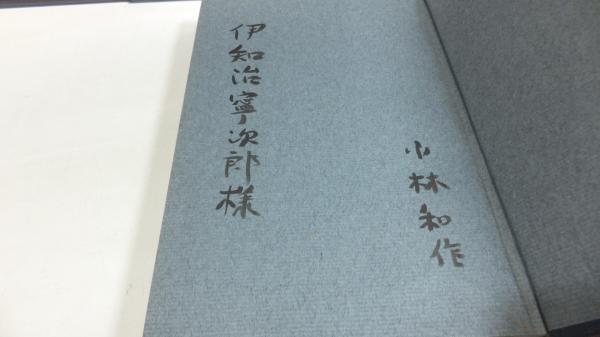 伊知治寧次郎様
小林和作